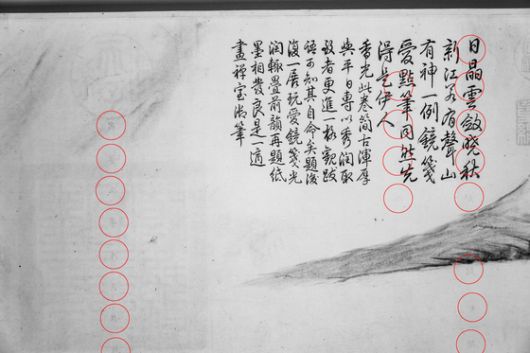 日晶雲斂曉秋
新江有聲山
有神一例鏡箋
愛點筆同然先
得是伊人
香光此卷簡古渾厚
與平日專以秀潤取
致者更進一格觀跋
語可知其自命矣題後
復一展玩愛鏡箋光
潤輒疊前韻再題紙
墨相發良是一適
畫禪室御筆